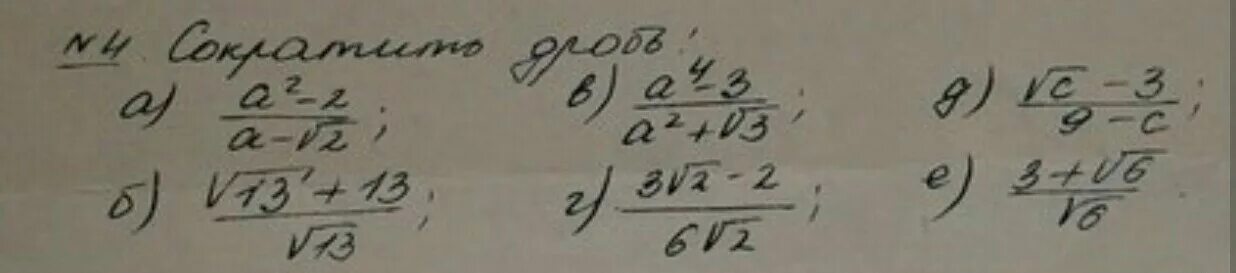 №4. Сократить дробь:
а) (a²-2)/(a-√2); в) (a⁴-3)/(a²+√3); д) (√c-3)/(9-c);
б) (√13+13)/√13; г) (3√2-2)/(6√2); е) (3+√6)/√6